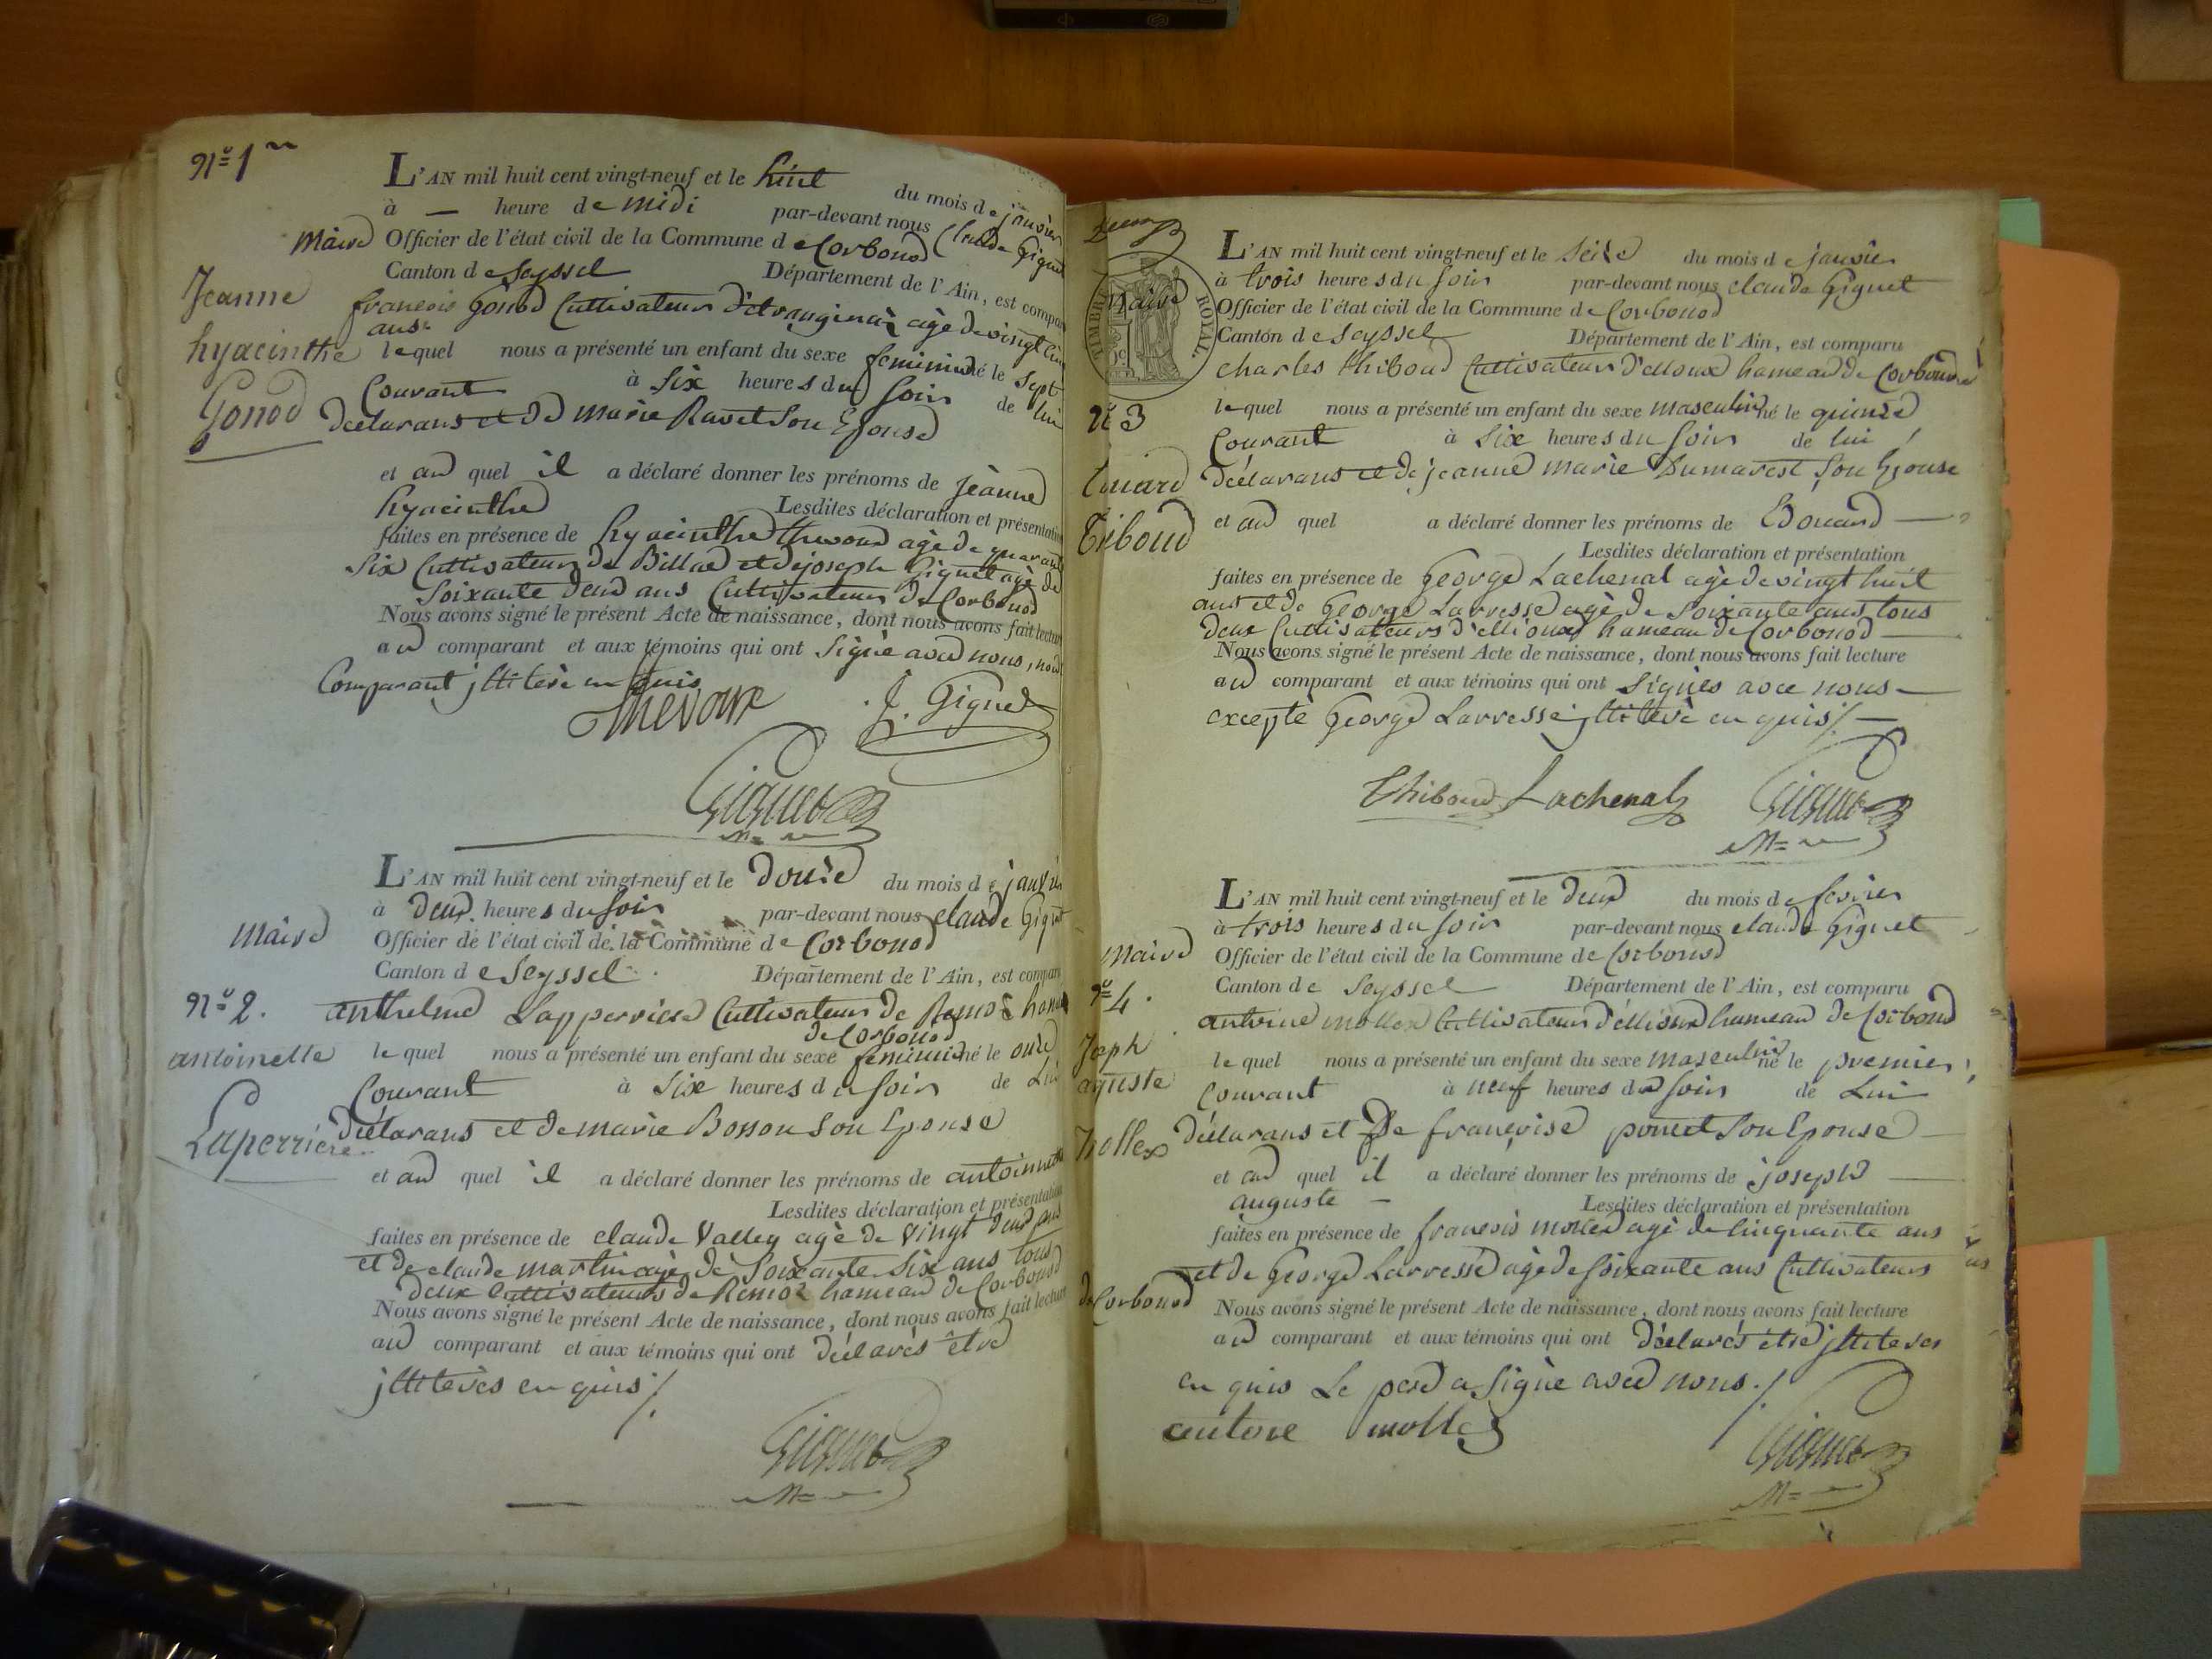 Nº 1
L'AN mil huit cent vingt-neuf et le huit du mois de janvier
à — heure de midi par-devant nous Claude Giguet
Maire Officier de l'état civil de la Commune de Corbonod
Canton de Seyssel Département de l'Ain, est compar
Jeanne
hyacinthe
Gonod
françois Gonod Cultivateur âgé de vingt
ans
lequel nous a présenté un enfant du sexe feminin né le Sept
Courant à Six heures du Soir de lui
déclarans et de marie Ravet Son Epouse
et au quel il a déclaré donner les prénoms de jeanne
hyacinthe Lesdites déclaration et présentation
faites en présence de hyacinthe âgé de quarante
Six Cultivateur de Billiad et de joseph Giguet agé de
Soixante deux ans Cultivateur de Corbonod
Nous avons signé le présent Acte de naissance, dont nous avons fait lecture
au comparant et aux témoins qui ont Signé avec nous,
Comparant jllitéré en quis
J. Giguet
Giguet
Mre
L'AN mil huit cent vingt-neuf et le douze du mois de janvier
à deux heures du Soir par-devant nous claude Giguet
Maire Officier de l'état civil de la Commune de Corbonod
Canton de Seyssel Département de l'Ain, est compar
Nº 2.
antoinette
Laperriere
anthelme Lapperriere Cultivateur de Remoz hameau
de Corbonod
lequel nous a présenté un enfant du sexe feminin né le onze
Courant à Six heures du Soir de Lui
déclarans et de marie Bosson Son Epouse
et au quel il a déclaré donner les prénoms de antoinette
Lesdites déclaration et présentation
faites en présence de claude Valley agé de Vingt deux ans
et de claude martin agé de Soixante Six ans tous
deux Cultivateurs de Remoz hameau de Corbonod
Nous avons signé le présent Acte de naissance, dont nous avons fait lecture
au comparant et aux témoins qui ont déclarés être
jllitérés en quis ./.
Giguet
Mre
TIMBRE ROYAL
L'AN mil huit cent vingt-neuf et le Seize du mois de janvier
à trois heures du Soir par-devant nous claude Giguet
Maire Officier de l'état civil de la Commune de Corbonod
Canton de Seyssel Département de l'Ain, est comparu
charles thiboud Cultivateur hameau de Corbonod
Nº 3
Thiboud
lequel nous a présenté un enfant du sexe masculin né le quinze
Courant à Six heures du Soir de lui
déclarans et de jeanne marie Dumarest Son Epouse
et au quel a déclaré donner les prénoms de Edouard —
Lesdites déclaration et présentation
faites en présence de George Lachenal agé de vingt huit
ans et de George Larresse agé de Soixante ans tous
deux Cultivateurs hameau de Corbonod —
Nous avons signé le présent Acte de naissance, dont nous avons fait lecture
au comparant et aux témoins qui ont Signés avec nous —
excepté George Larresse jllitéré en quis ./. —
Thiboud Lachenal Giguet
Mre
L'AN mil huit cent vingt-neuf et le deux du mois de fevrier
à trois heures du Soir par-devant nous claude Giguet
Maire Officier de l'état civil de la Commune de Corbonod
Canton de Seyssel Département de l'Ain, est comparu
Nº 4.
Joseph
aguste
Mollex
antoine mollex Cultivateur hameau de Corbonod
lequel nous a présenté un enfant du sexe masculin né le premier
Courant à neuf heures du Soir de Lui
déclarans et de françoise poncet Son Epouse —
et au quel il a déclaré donner les prénoms de joseph —
auguste — Lesdites déclaration et présentation
faites en présence de françois mollex agé de Cinquante ans
et de George Larresse agé de Soixante ans Cultivateurs
de Corbonod Nous avons signé le présent Acte de naissance, dont nous avons fait lecture
au comparant et aux témoins qui ont déclarés être jllitérés
en quis Le pere a Signé avec nous ./.
antone mollex Giguet
Mre